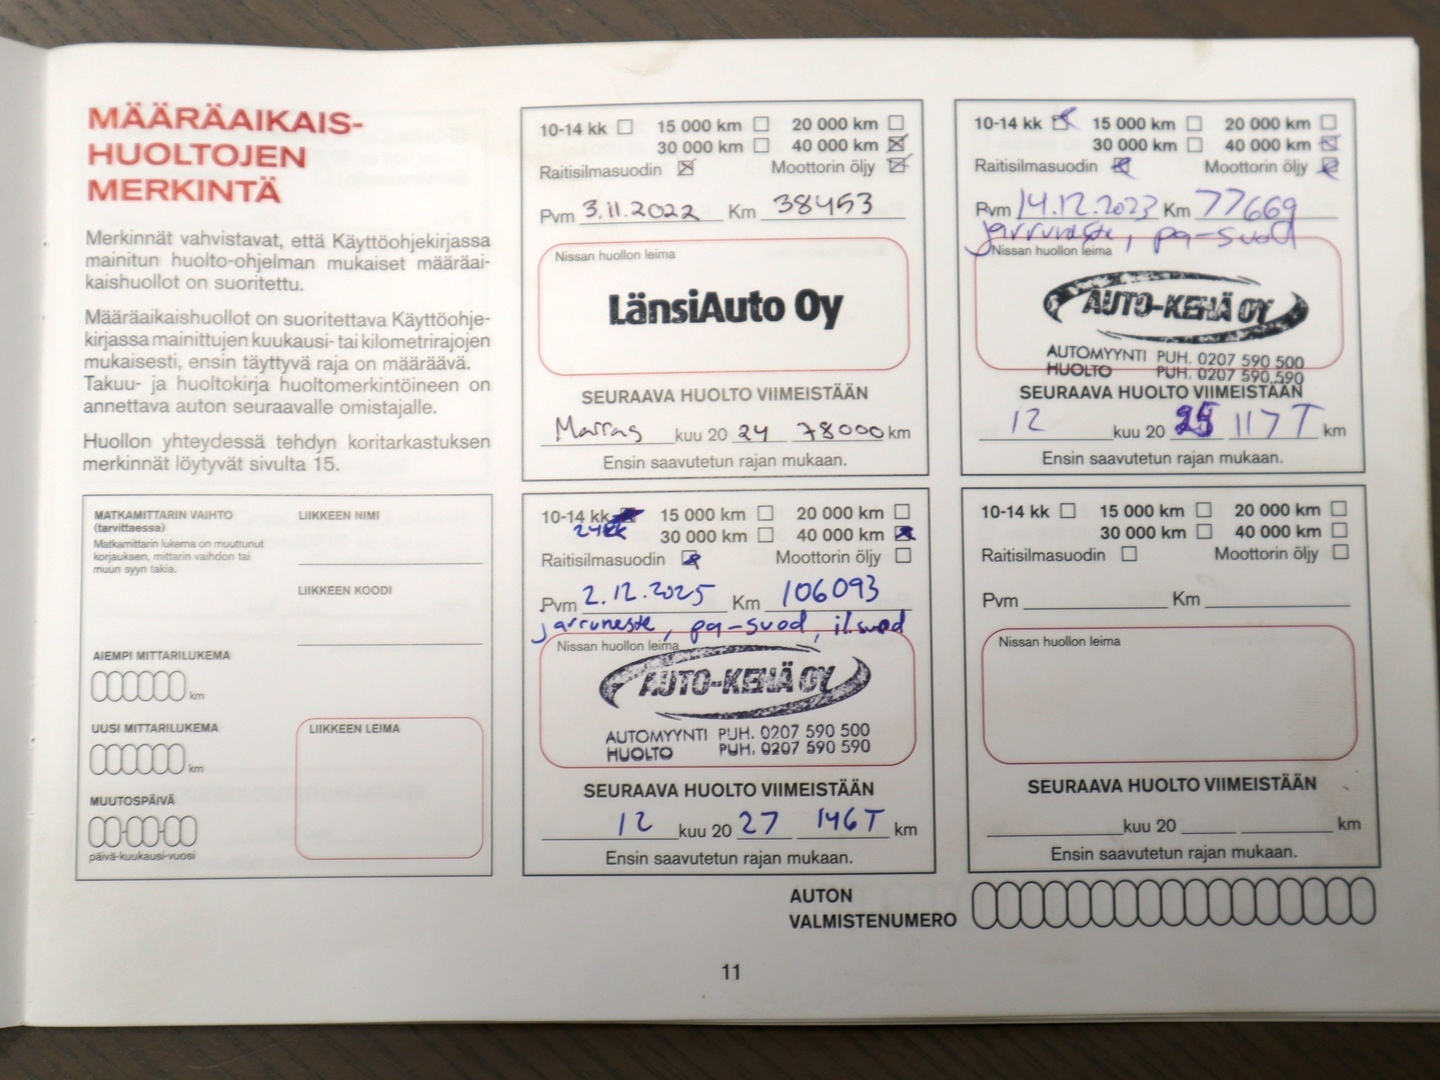 MÄÄRÄAIKAIS-
HUOLTOJEN
MERKINTÄ
Merkinnät vahvistavat, että Käyttöohjekirjassa
mainitun huolto-ohjelman mukaiset määräai-
kaishuollot on suoritettu.
Määräaikaishuollot on suoritettava Käyttöohje-
kirjassa mainittujen kuukausi- tai kilometrirajojen
mukaisesti, ensin täyttyvä raja on määräävä.
Takuu- ja huoltokirja huoltomerkintöineen on
annettava auton seuraavalle omistajalle.
Huollon yhteydessä tehdyn koritarkastuksen
merkinnät löytyvät sivulta 15.
MATKAMITTARIN VAIHTO
(tarvittaessa)
Matkamittarin lukema on muuttunut
korjauksen, mittarin vaihdon tai
muun syyn takia.
LIIKKEEN NIMI
LIIKKEEN KOODI
AIEMPI MITTARILUKEMA
km
UUSI MITTARILUKEMA
km
LIIKKEEN LEIMA
MUUTOSPÄIVÄ
päivä-kuukausi-vuosi
10-14 kk 15 000 km 20 000 km
30 000 km 40 000 km
Raitisilmasuodin Moottorin öljy
Pvm 3.11.2022 Km 38453
Nissan huollon leima
LänsiAuto Oy
SEURAAVA HUOLTO VIIMEISTÄÄN
Marras kuu 20 24 78000 km
Ensin saavutetun rajan mukaan.
10-14 kk 15 000 km 20 000 km
30 000 km 40 000 km
Raitisilmasuodin Moottorin öljy
Pvm 14.12.2023 Km 77669
jarruneste, pa-suod
Nissan huollon leima
AUTO-KEHÄ OY
AUTOMYYNTI PUH. 0207 590 500
HUOLTO PUH. 0207 590 590
SEURAAVA HUOLTO VIIMEISTÄÄN
12 kuu 20 25 117 T km
Ensin saavutetun rajan mukaan.
10-14 kk 15 000 km 20 000 km
24kk 30 000 km 40 000 km
Raitisilmasuodin Moottorin öljy
Pvm 2.12.2025 Km 106093
jarruneste, pa-suod, il.suod
Nissan huollon leima
AUTO-KEHÄ OY
AUTOMYYNTI PUH. 0207 590 500
HUOLTO PUH. 0207 590 590
SEURAAVA HUOLTO VIIMEISTÄÄN
12 kuu 20 27 146 T km
Ensin saavutetun rajan mukaan.
10-14 kk 15 000 km 20 000 km
30 000 km 40 000 km
Raitisilmasuodin Moottorin öljy
Pvm Km
Nissan huollon leima
SEURAAVA HUOLTO VIIMEISTÄÄN
kuu 20 km
Ensin saavutetun rajan mukaan.
AUTON
VALMISTENUMERO
11